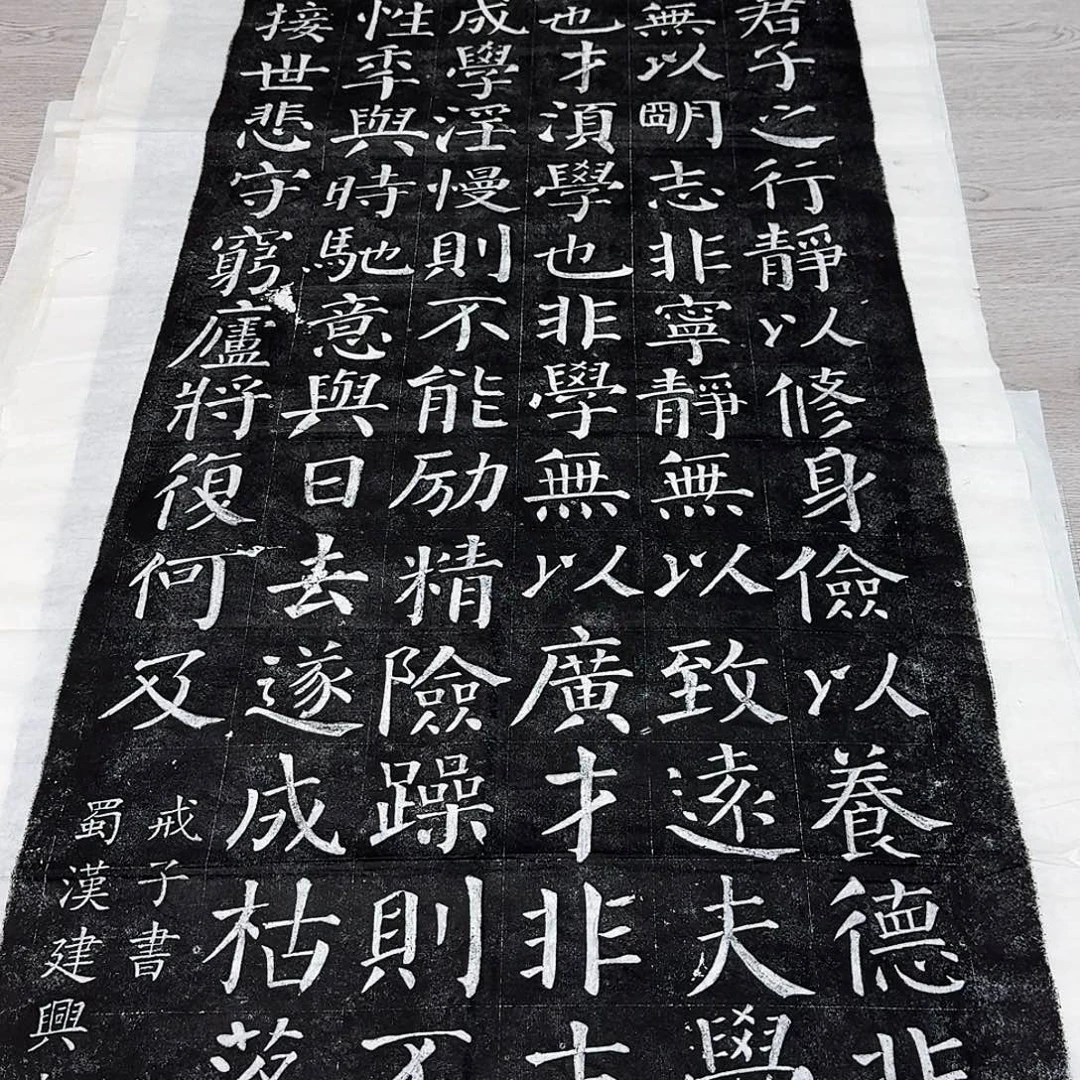 君子之行靜以修身儉以養德非
無以朙志非寧靜無以致遠夫學
也才湏學也非學無以廣才非志
成學淫慢則不能励精險躁則不
性年與時馳意與日去遂成枯落
接世悲守窮廬將復何及
戒子書
蜀漢建興